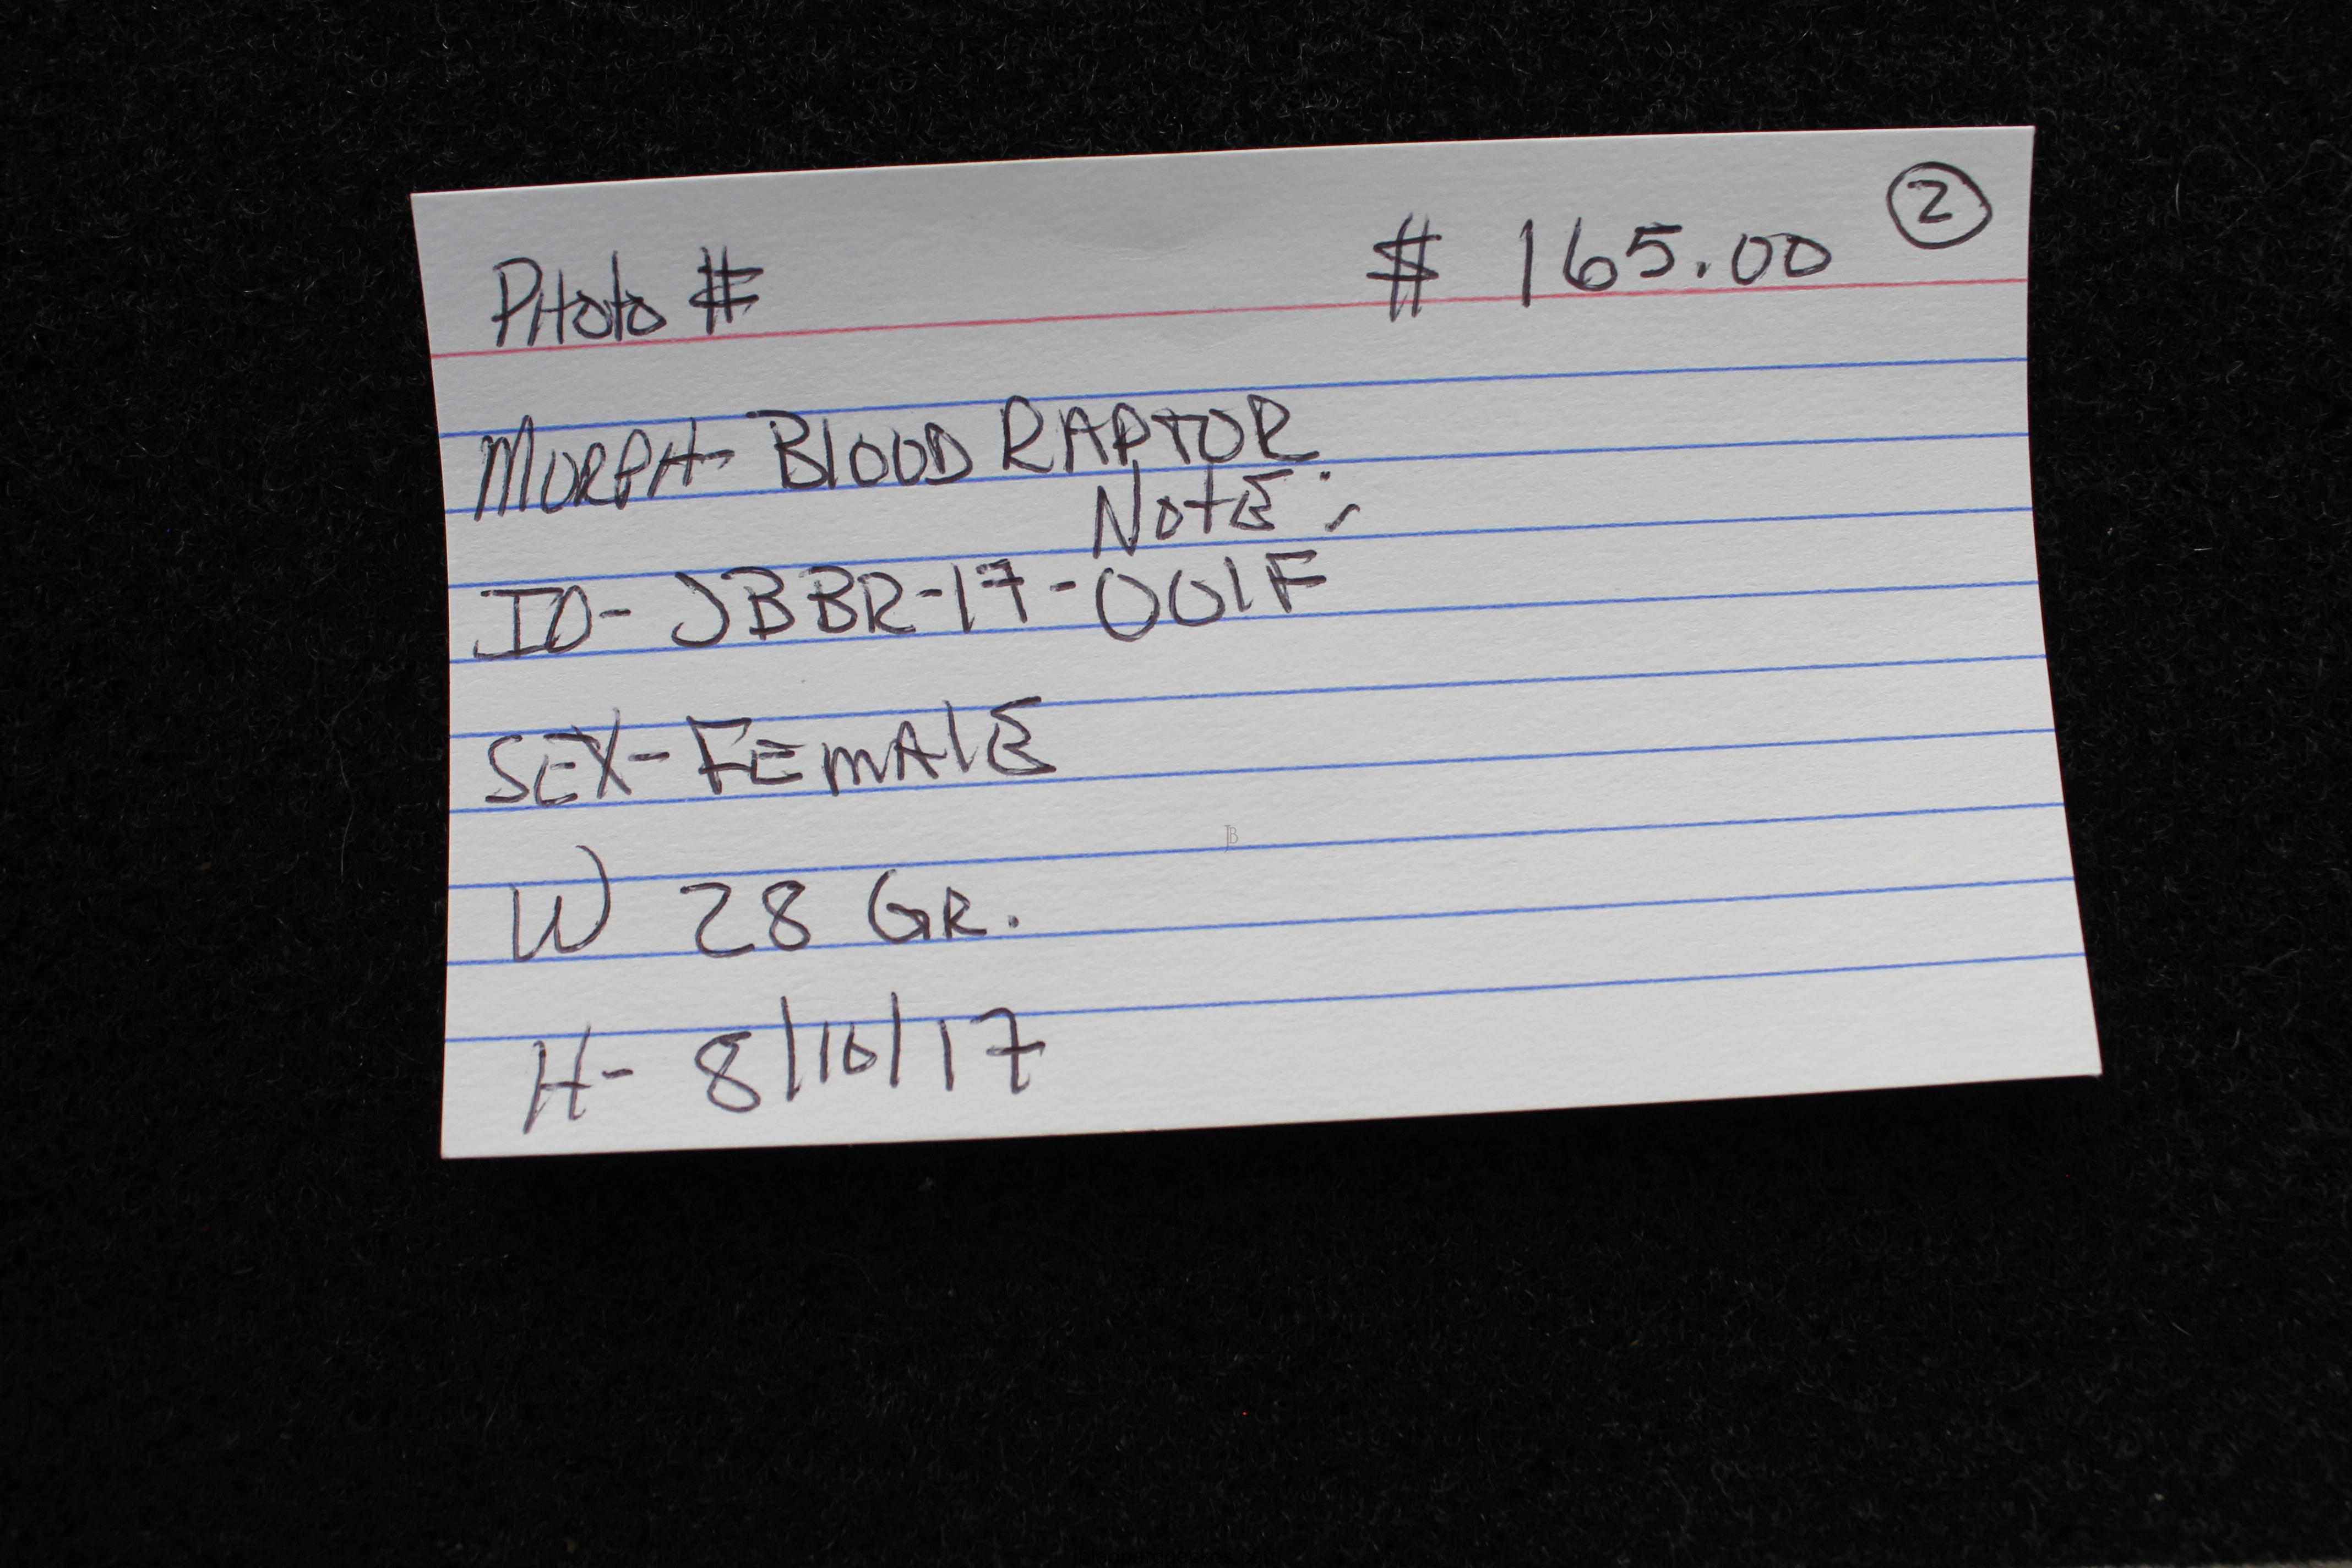 Photo # $ 165.00 2
MORPH- BLOOD RAPTOR
NOTE:
ID- JBBR-17-001F
SEX- FEMALE
W 28 GR.
H- 8/10/17
JB